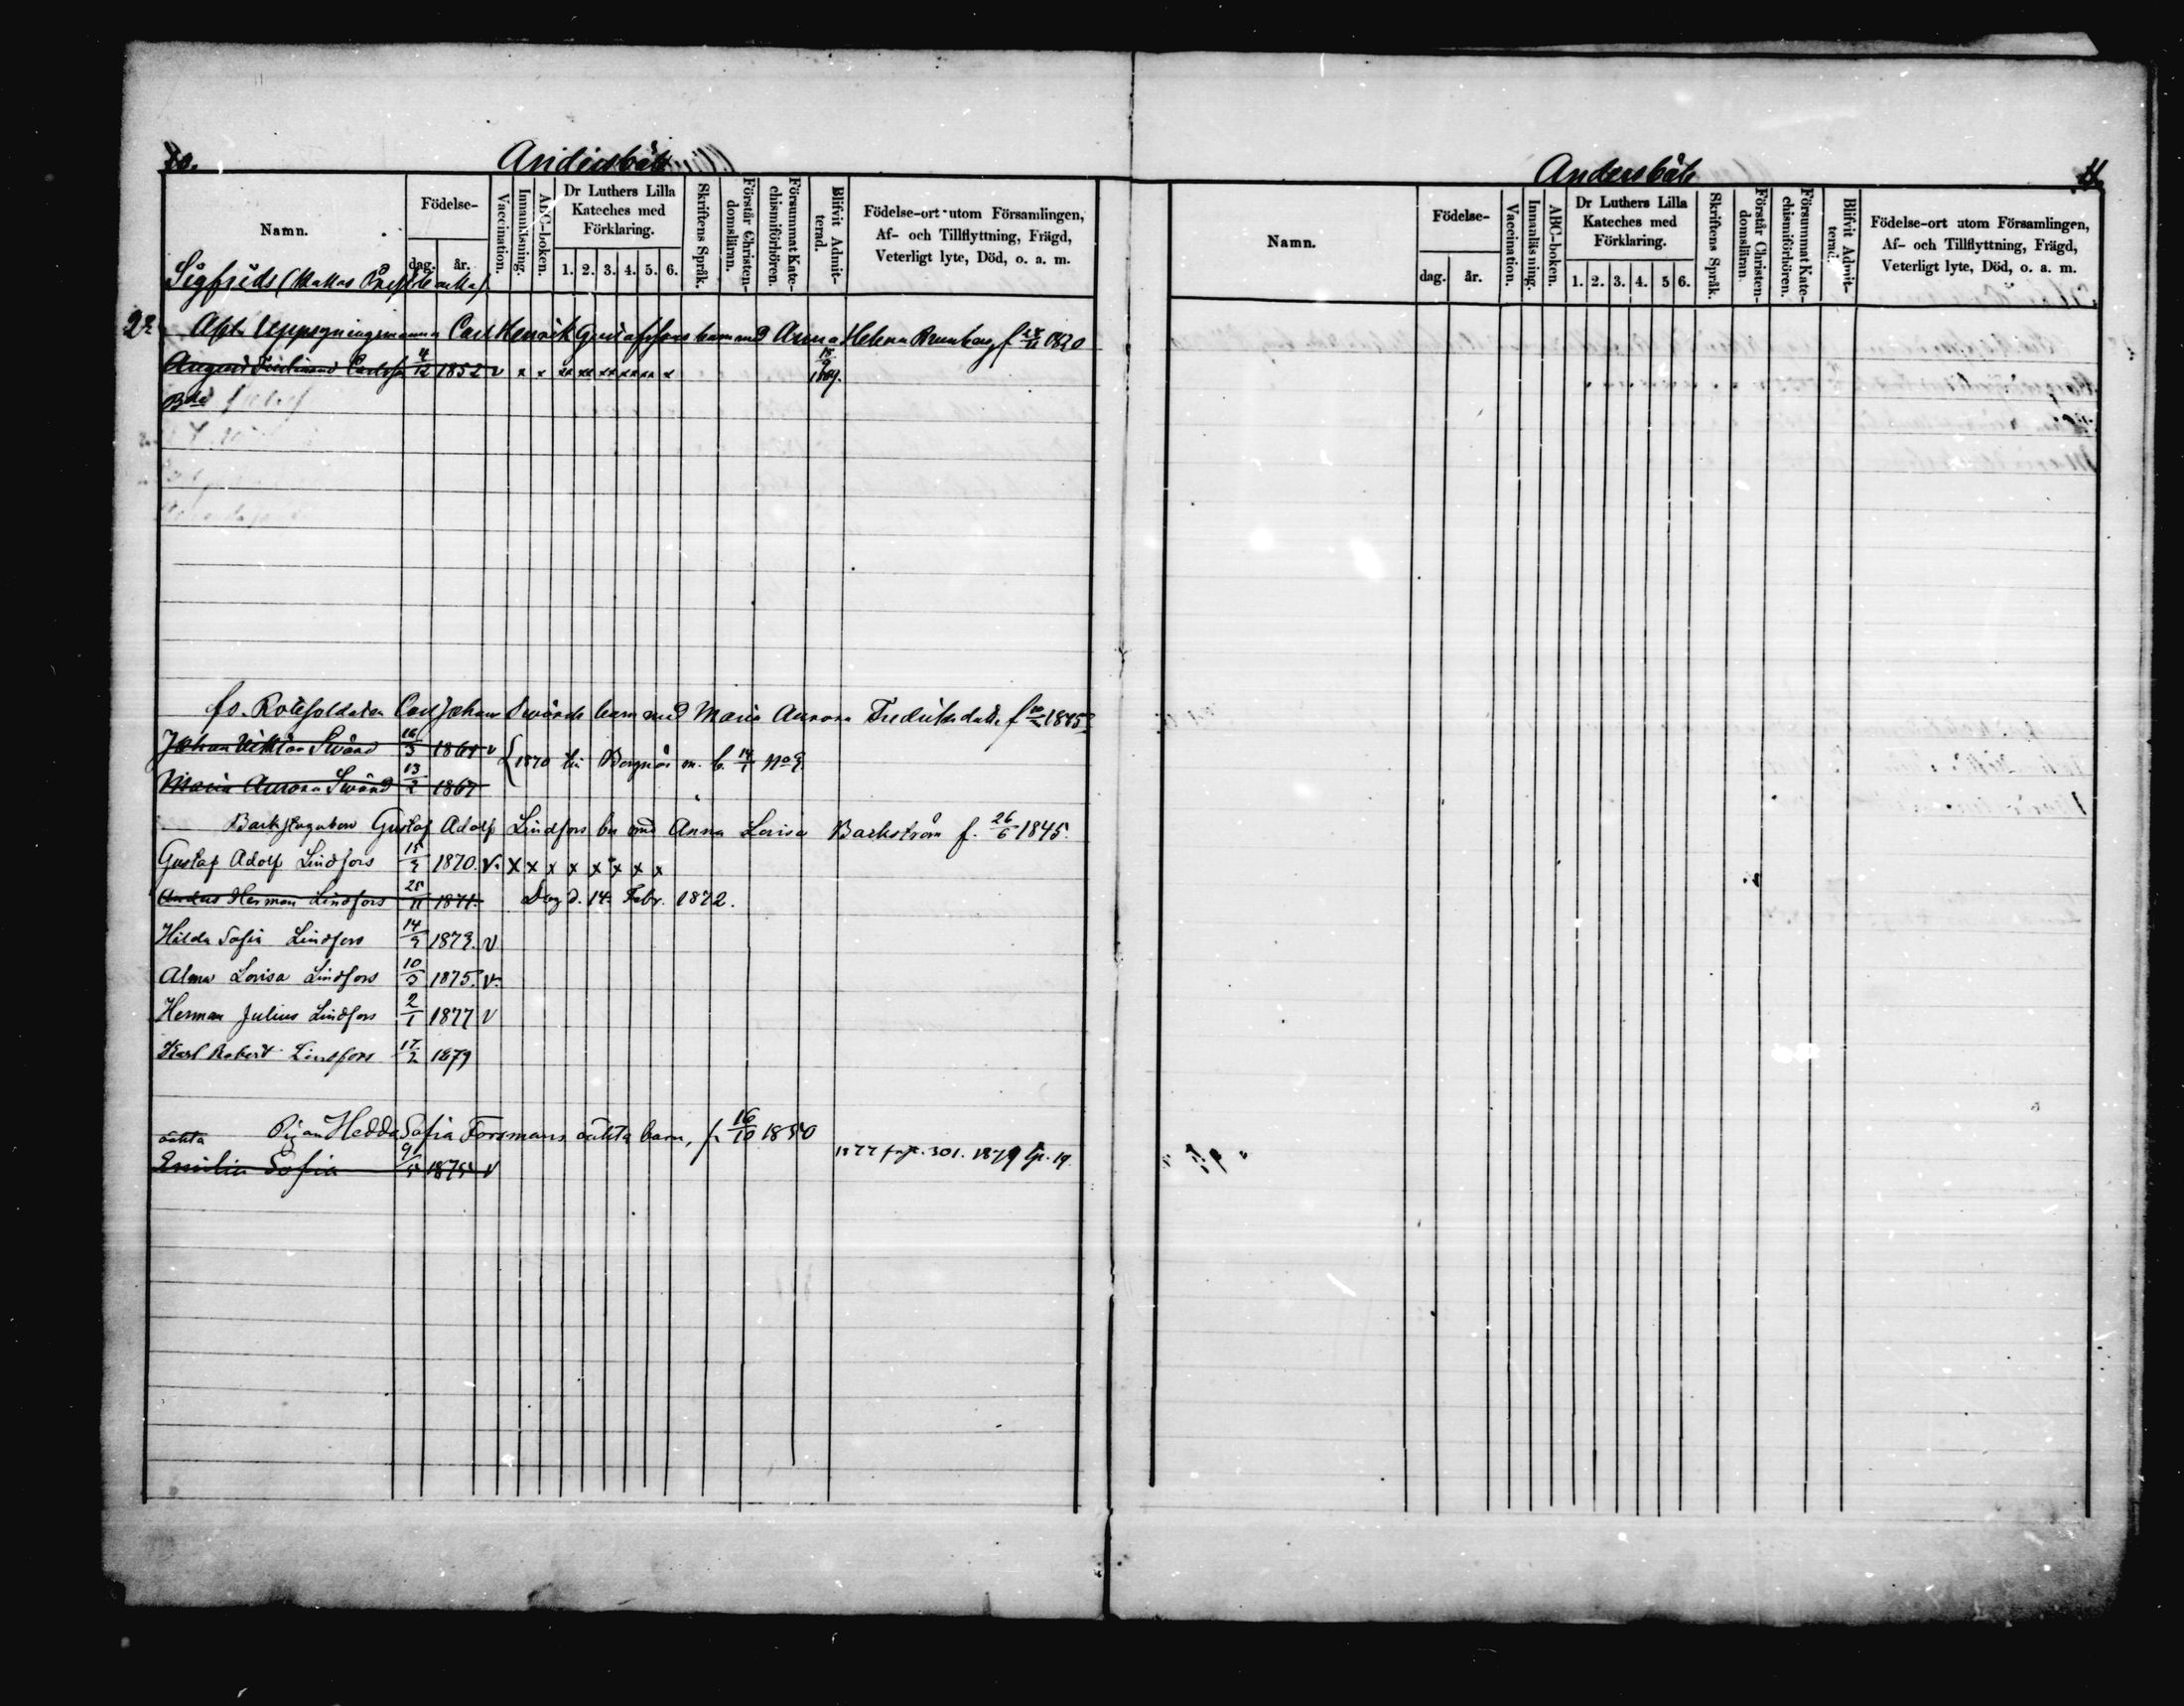 10.
Andersböle
Namn.
Födelse-
dag.
år.
Vaccination.
Innanläsning.
ABC-boken.
Dr Luthers Lilla
Kateches med
Förklaring.
1. 2. 3. 4. 5. 6.
Skriftens Språk.
Förstår Christen-
domsläran.
Försummat Kate-
chismiförhören.
Blifvit Admit-
terad.
Födelse-ort utom Församlingen,
Af- och Tillflyttning, Frägd,
Veterligt lyte, Död, o. a. m.
Sigfrids
22
Afsk. Uppsyningsmannen Carl Henrik Gustafssons barn med Anna Helena f 1820
August Ferdinand Carlsson 4/12 1852 v x x xx xx xx xx xx x 1869.
fs. Rotesoldaten Carl Johan Swärds barn med Maria Aurora Fredriksdotter f 1845
Johan Viktor Swärd 16/3 1864 v
1870 till Bergnäs m. b. 14/1 No 9.
Maria Aurora Swärd 13/2 1867
Backstugubon Gustaf Adolf Lindfors ba med Anna Lovisa Backström f. 26/6 1845.
Gustaf Adolf Lindfors 15/3 1870. v. x x x x x x x x
Anders Herman Lindfors 25/11 1871. Dog d. 14 Febr. 1872.
Hilda Sofia Lindfors 14/3 1873. v
Alma Lovisa Lindfors 10/3 1875. v.
Herman Julius Lindfors 2/1 1877 v
Karl Robert Lindfors 17/2 1879
Pigan Hedda Sofia Forsmans oäkta barn, f. 16/10 1850
oäkta
Emilia Sofia 9/5 1875 v
1877 fr. p. 301. 1879 t. p. 19.
11.
Andersböle
Namn.
Födelse-
dag.
år.
Vaccination.
Innanläsning.
ABC-boken.
Dr Luthers Lilla
Kateches med
Förklaring.
1. 2. 3. 4. 5 6.
Skriftens Språk.
Förstår Christen-
domsläran.
Försummat Kate-
chismiförhören.
Blifvit Admit-
terad.
Födelse-ort utom Församlingen,
Af- och Tillflyttning, Frägd,
Veterligt lyte, Död, o. a. m.